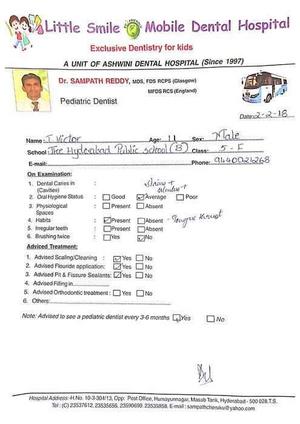 Little Smile Mobile Dental Hospital
Exclusive Dentistry for kids
A UNIT OF ASHWINI DENTAL HOSPITAL (Since 1997)
Dr. SAMPATH REDDY, MDS, FDS RCPS (Glasgow)
MFDS RCS (England)
Pediatric Dentist
Date: 2-2-18
Name: T. Victor Age: 11 Sex: Male
School: The Hyderabad Public school (B) Class: 5-F
E-mail: Phone: 9440026268
On Examination:
1. Dental Caries in
(Cavities)
2. Oral Hygiene Status : Good Average Poor
3. Physiological : Present Absent
Spaces
4. Habits : Present Absent - Tongue thrust
5. Irregular teeth : Present Absent
6. Brushing twice : Yes No
Adviced Treatment:
1. Advised Scaling/Cleaning : Yes No
2. Advised Flouride application: Yes No
3. Advised Pit & Fissure Sealants: Yes No
4. Advised Filling in
5. Advised Orthodontic treatment : Yes No
6. Others:
Note: Advised to see a pediatric dentist every 3-6 months Yes No
Hospital Address -H.No. 10-3-304/13, Opp: Post Office, Humayunnagar, Masab Tank, Hyderabad - 500 028.T.S.
Tel : (C) 23537612, 23535656, 23590690 23535858, E-mail : sampathcheruku@yahoo.com